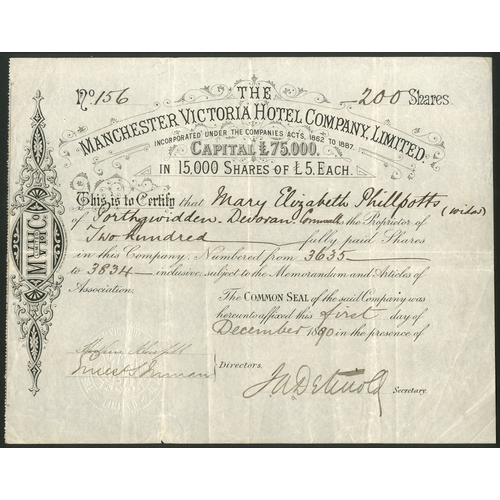 No. 156
THE
200 Shares
MANCHESTER VICTORIA HOTEL COMPANY, LIMITED.
INCORPORATED UNDER THE COMPANIES ACTS, 1862 TO 1887.
CAPITAL £75,000.
IN 15,000 SHARES OF £5 EACH.
This is to Certify that Mary Elizabeth Phillpotts (widow)
of Porthgwidden, Devoran, Cornwall the Proprietor of
Two hundred fully paid Shares
in this Company. Numbered from 3635
to 3834 inclusive, subject to the Memorandum and Articles of
Association.
The COMMON SEAL of the said Company was
hereunto affixed this first day of
December 1890 in the presence of
Directors.
Secretary.
THE M.V.H. CO. LTD.